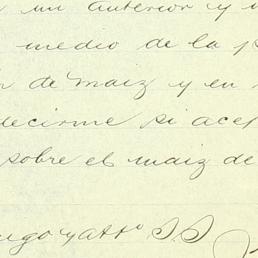 mi anterior y
medio de la
de maiz y en
decirme si acep
sobre el maiz de
igo y atto S S